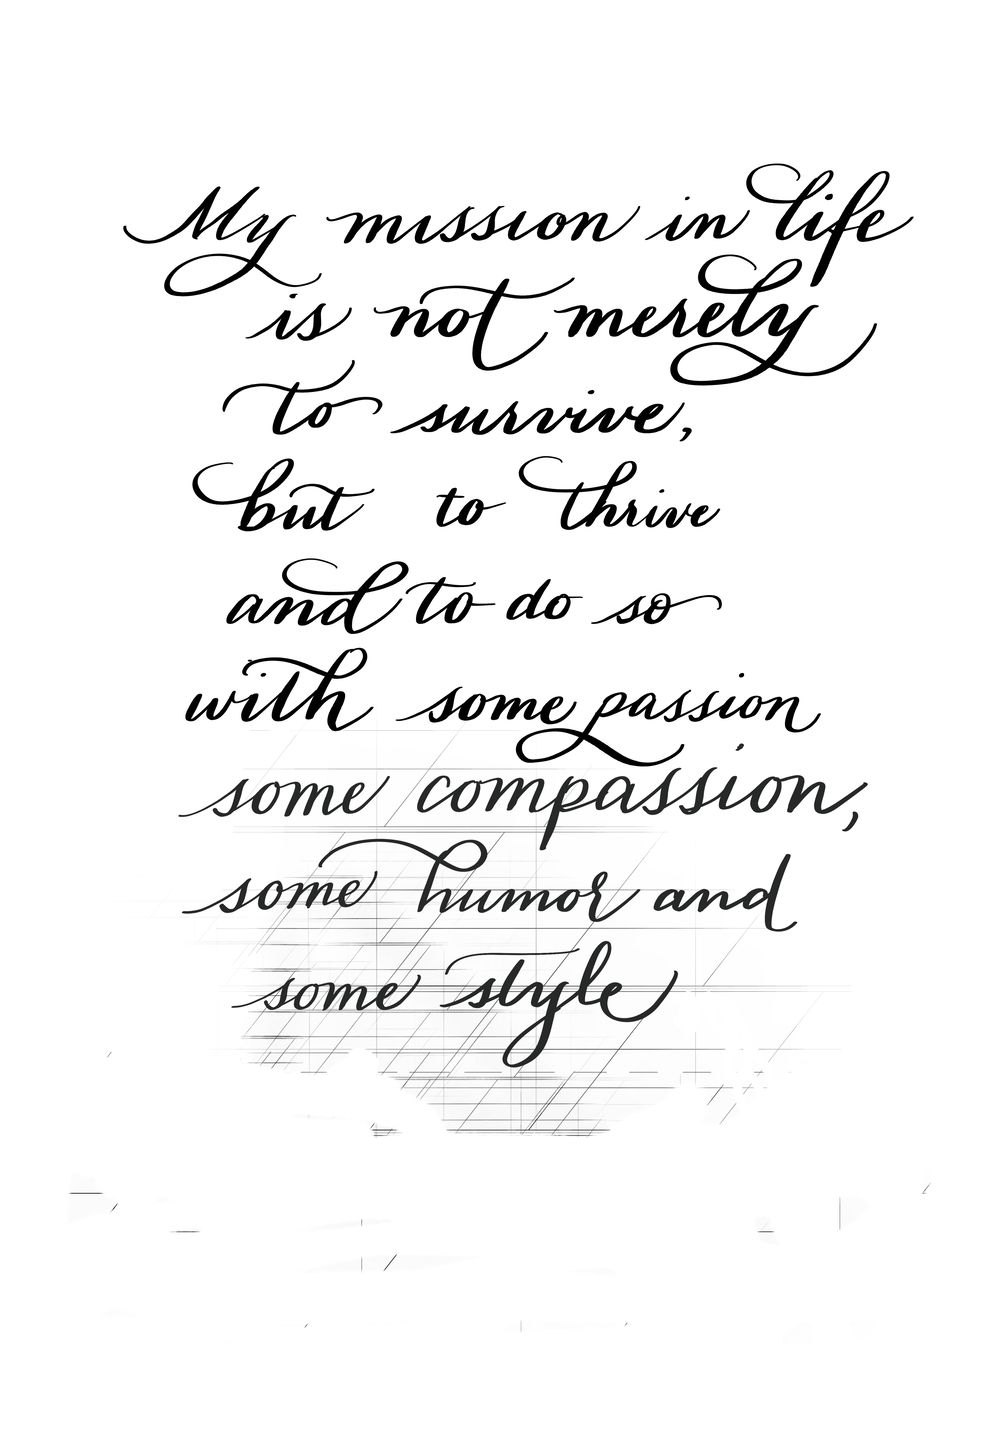 My mission in life
is not merely
to survive,
but to thrive
and to do so
with some passion
some compassion,
some humor and
some style